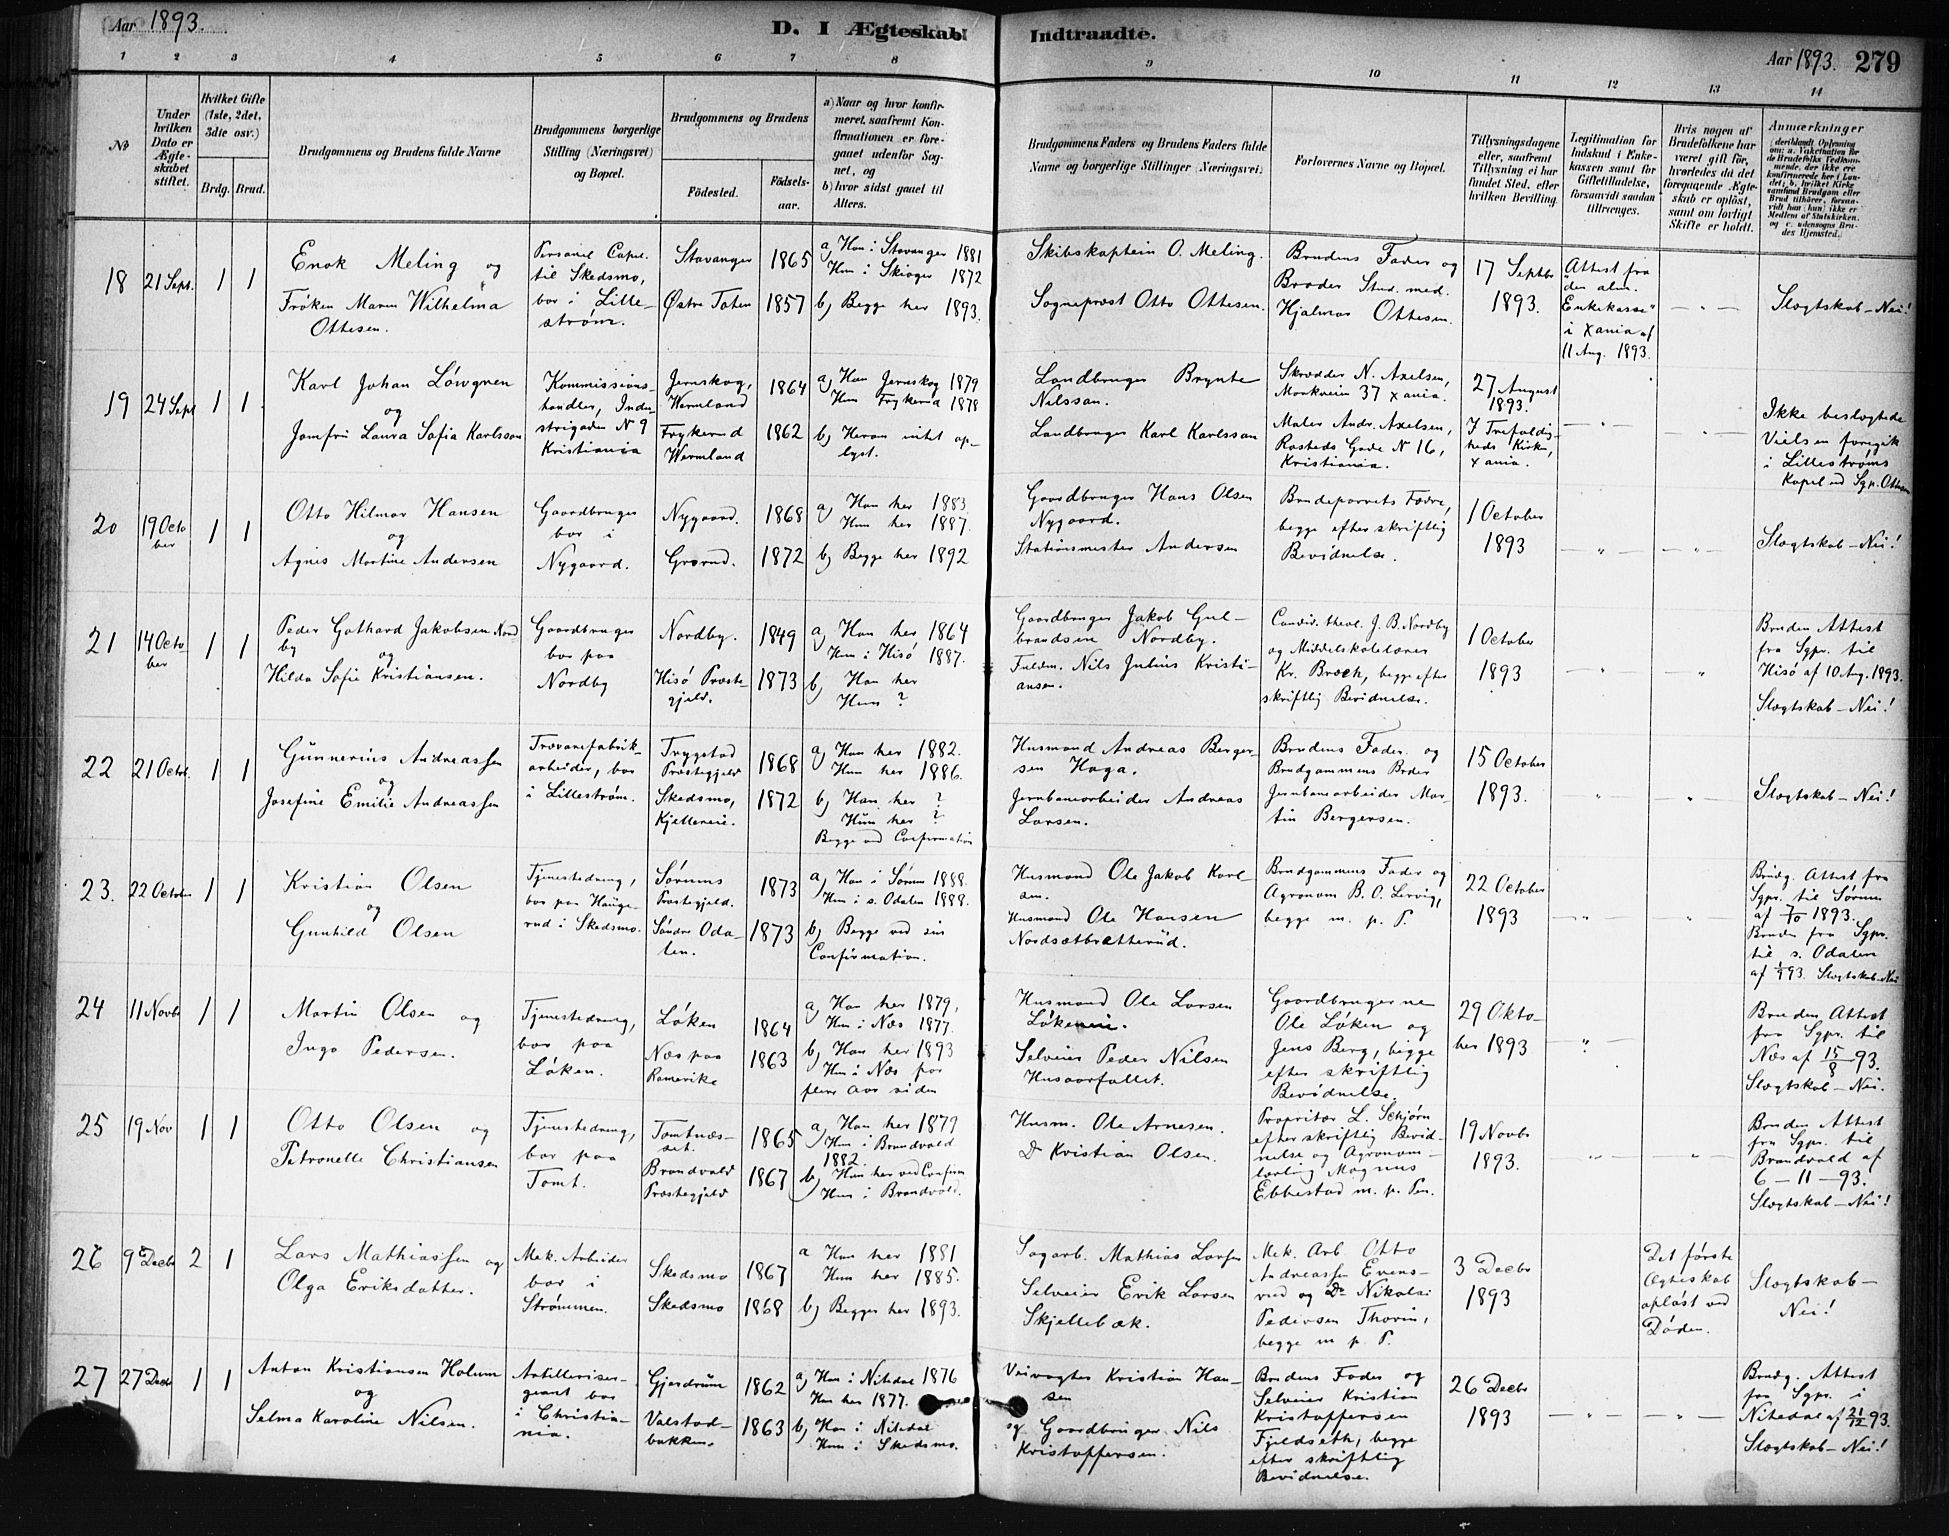 Aar 1893.
D. I Ægteskab
Indtraadte.
Aar 1893. 279
1 2 3 4 5 6 7 8 9 10 11 12 13 14
No
Under hvilken Dato er Ægteskabet stiftet.
Hvilket Gifte (1ste, 2det, 3die osv.)
Brdg. Brud.
Brudgommens og Brudens fulde Navne
Brudgommens borgerlige Stilling (Næringsvei) og Bopæl.
Brudgommens og Brudens
Fødested.
Fødselsaar.
a) Naar og hvor konfirmeret, saafremt Konfirmationen er foregaaet udenfor Sognet, og
b) hvor sidst gaaet til Alters.
Brudgommens Faders og Brudens Faders fulde Navne og borgerlige Stillinger (Næringsvei)
Forlovernes Navne og Bopæl.
Tillysningsdagene eller, saafremt Tillysning ei har fundet Sted, efter hvilken Bevilling.
Legitimation for Indskud i Enkekassen samt for Giftetilladelse, forsaavidt saadan tiltrænges.
Hvis nogen af Brudefolkene har været gift før, hvorledes da det foregaaende Ægteskab er opløst, samt om lovligt Skifte er holdt.
Anmærkninger
18 21 Sept. 1 1
Enok Meling og
Frøken Maren Wilhelma
Ottesen.
Personel Capel.
til Skedsmo,
bor i Lille-
strøm.
Stavanger 1865
Østre Toten 1857
a) Han i Stavanger 1881
Hun i Skioger 1872
b) Begge her 1893.
Skibskaptein O. Meling.
Sogneprest Otto Ottesen.
Brudens Fader og
Broder Stud. med.
Hjalmar Ottesen.
17 Septbr
1893.
Attest fra
"den alm.
Enkekasse"
i Xania af
11 Aug. 1893.
Slægtskab - Nei!
19 24 Sept 1 1
Karl Johan Löwgren
og
Jomfru Laura Sofia Karlsson
Kommissions-
handler, Indu-
strigaden N 9
Kristiania
Jernskog,
Wermland 1864
Frykerud
Wermland 1862
a) Han Jernskog 1879
Hun Frykerud 1878
b) Herom intet op-
lyst.
Landbruger Brynte
Nilsson.
Landbruger Karl Karlsson
Skrædder N. Axelsen,
Markveien 37 Xania.
Maler Andr. Axelsen,
Rosteds Gade N 16,
Kristiania.
27 August
1893.
I Trefoldig-
heds Kirke,
Xania.
Ikke beslægtede
Vielsen foregik
i Lillestrøms
Kapel ved Sgp. Ottesen
20 19 Octo
ber 1 1
Otto Hilmar Hansen
og
Agnes Martine Andersen
Gaardbruger
bor i
Nygaard.
Nygaard. 1868
Grorud. 1872
a) Han her 1883.
Hun her 1887.
b) Begge her 1892
Gaardbruger Hans Olsen
Nygaard.
Stationsmester Andersen
Brudeparrets Fædre,
begge efter skriftlig
Bevidnelse.
1 October
1893
Slægtskab - Nei!
21 14 Octo
ber 1 1
Peder Gothard Jakobsen Nord
by
og
Hilda Sofie Kristiansen.
Gaardbruger
bor paa
Nordby
Nordby. 1849
Hisö Præste-
gjeld. 1873
a) Han her 1864
Hun i Hisö 1887.
b) Han her
Hun ?
Gaardbruger Jakob Gul-
brandsen Nordby.
Fuldm. Nils Julius Kristi-
ansen.
Candid. theol. J. B. Nordby
og Middelskolelærer
Kr. Broch, begge efter
skriftlig Bevidnelse.
1 October
1893
Bruden Attest
fra Sgpr. til
Hisö af 10 Aug. 1893.
Slægtskab - Nei!
22 21 Octbr. 1 1
Gunnerius Andreassen
og
Josefine Emilie Andreassen
Trævarefabrik-
arbeider, bor
i Lillestrøm.
Trygstad
Præstegjeld 1868
Skedsmo,
Kjellereie. 1872
a) Han her 1882.
Hun her 1886.
b) Han her ?
Hun her ?
Begge ved Confirmation
Husmand Andreas Berger-
sen Haga.
Jernbanearbeider Andreas
Larsen.
Brudens Fader og
Brudgommens Broder
Jernbanearbeider Mar-
tin Bergersen.
15 October
1893.
Slægtskab - Nei!
23. 22 October 1 1
Kristian Olsen
og
Gunhild Olsen
Tjenestedreng,
bor paa Hauge-
rud i Skedsmo.
Sørums
Præstegjeld. 1873
Söndre Oda-
len. 1873
a) Han i Sørum 1888.
Hun i s. Odalen 1888.
b) Begge ved sin
Confirmation.
Husmand Ole Jakob Karl
sen.
Husmand Ole Hansen
Nordsætbrætterud.
Brudgommens Fader og
Agronom B. O. Lervig,
begge m. p. P.
22 October
1893
Brudg. Attest fra
Sgpr. til Sørum
af 7/10 1893.
Bruden fra Sgpr.
til s. Odalen
af 93. Slægtskab-Nei
24 11 Novbr 1 1
Martin Olsen og
Inga Pedersen.
Tjenestedreng,
bor paa
Løken.
Løken 1864
Næs paa
Romerike 1863
a) Han her 1879,
Hun i Næs 1877.
b) Han her 1893
Hun i Næs for
flere Aar siden
Husmand Ole Larsen
Løkeneie.
Selveier Peder Nilsen
Husaarfallet.
Gaardbrugerne
Ole Løken og
Jens Berg, begge
efter skriftlig
Bevidnelse.
29 Okto-
ber 1893
Bruden Attest
fra Sgpr. til
Næs af 15/8 93.
Slægtskab - Nei.
25 19 Nov 1 1
Otto Olsen og
Petronelle Christiansen
Tjenestedreng,
bor paa
Tomt.
Tomtnæs-
set. 1865
Brandvold
Præstegjeld 1867
a) Han her 1879
Hun i Brandvold
1882.
b) Han her ved Confirm
Hun i Brandvold.
Husm. Ole Arnesen.
Do Kristian Olsen.
Proprietær L. Schjørn
efter skriftlig Bevid-
nelse og Agronom-
lærling Magnus
Ebbestad m. p. Pen.
19 Novbr
1893.
Bruden Attest
fra Sgpr. til
Brandvold af
6-11-93.
Slægtskab - Nei!
26 9 Decbr 2 1
Lars Mathiassen og
Olga Eriksdatter.
Mek. Arbeider
bor i
Strømmen.
Skedsmo 1867
Skedsmo 1868
a Han her 1881
Hun her 1885.
b) Begge her 1893.
Sagarb. Mathias Larsen
Selveier Erik Larsen
Skjellebæk.
Mek. Arb. Otto
Andreassen Evens-
rud og Do Nikolai
Pedersen Thorin,
begge m p. P.
3 Decbr
1893
Det første
Ægteskab
opløst ved
Døden.
Slægtskab -
Nei!
27 27 Decbr 1 1
Anton Kristiansen Holum
og
Selma Karoline Nilsen.
Artilleriser-
geant bor
i Christia-
nia.
Gjerdrum 1862
Valstad-
bakken. 1863
a) Han i Nitedal 1876
Hun her 1877.
b) Han i Nitedal
Hun i Skedsmo.
Veivogter Kristian Han-
sen
og Gaardbruger Nils
Kristoffersen.
Brudens Fader og
Selveier Kristian
Kristoffersen
Fjeldseth, begge
efter skriftlig
Bevidnelse.
26 Decbr
1893
Brudg. Attest
fra Sgpr. i
Nitedal af 21/12 93.
Slægtskab - Nei!